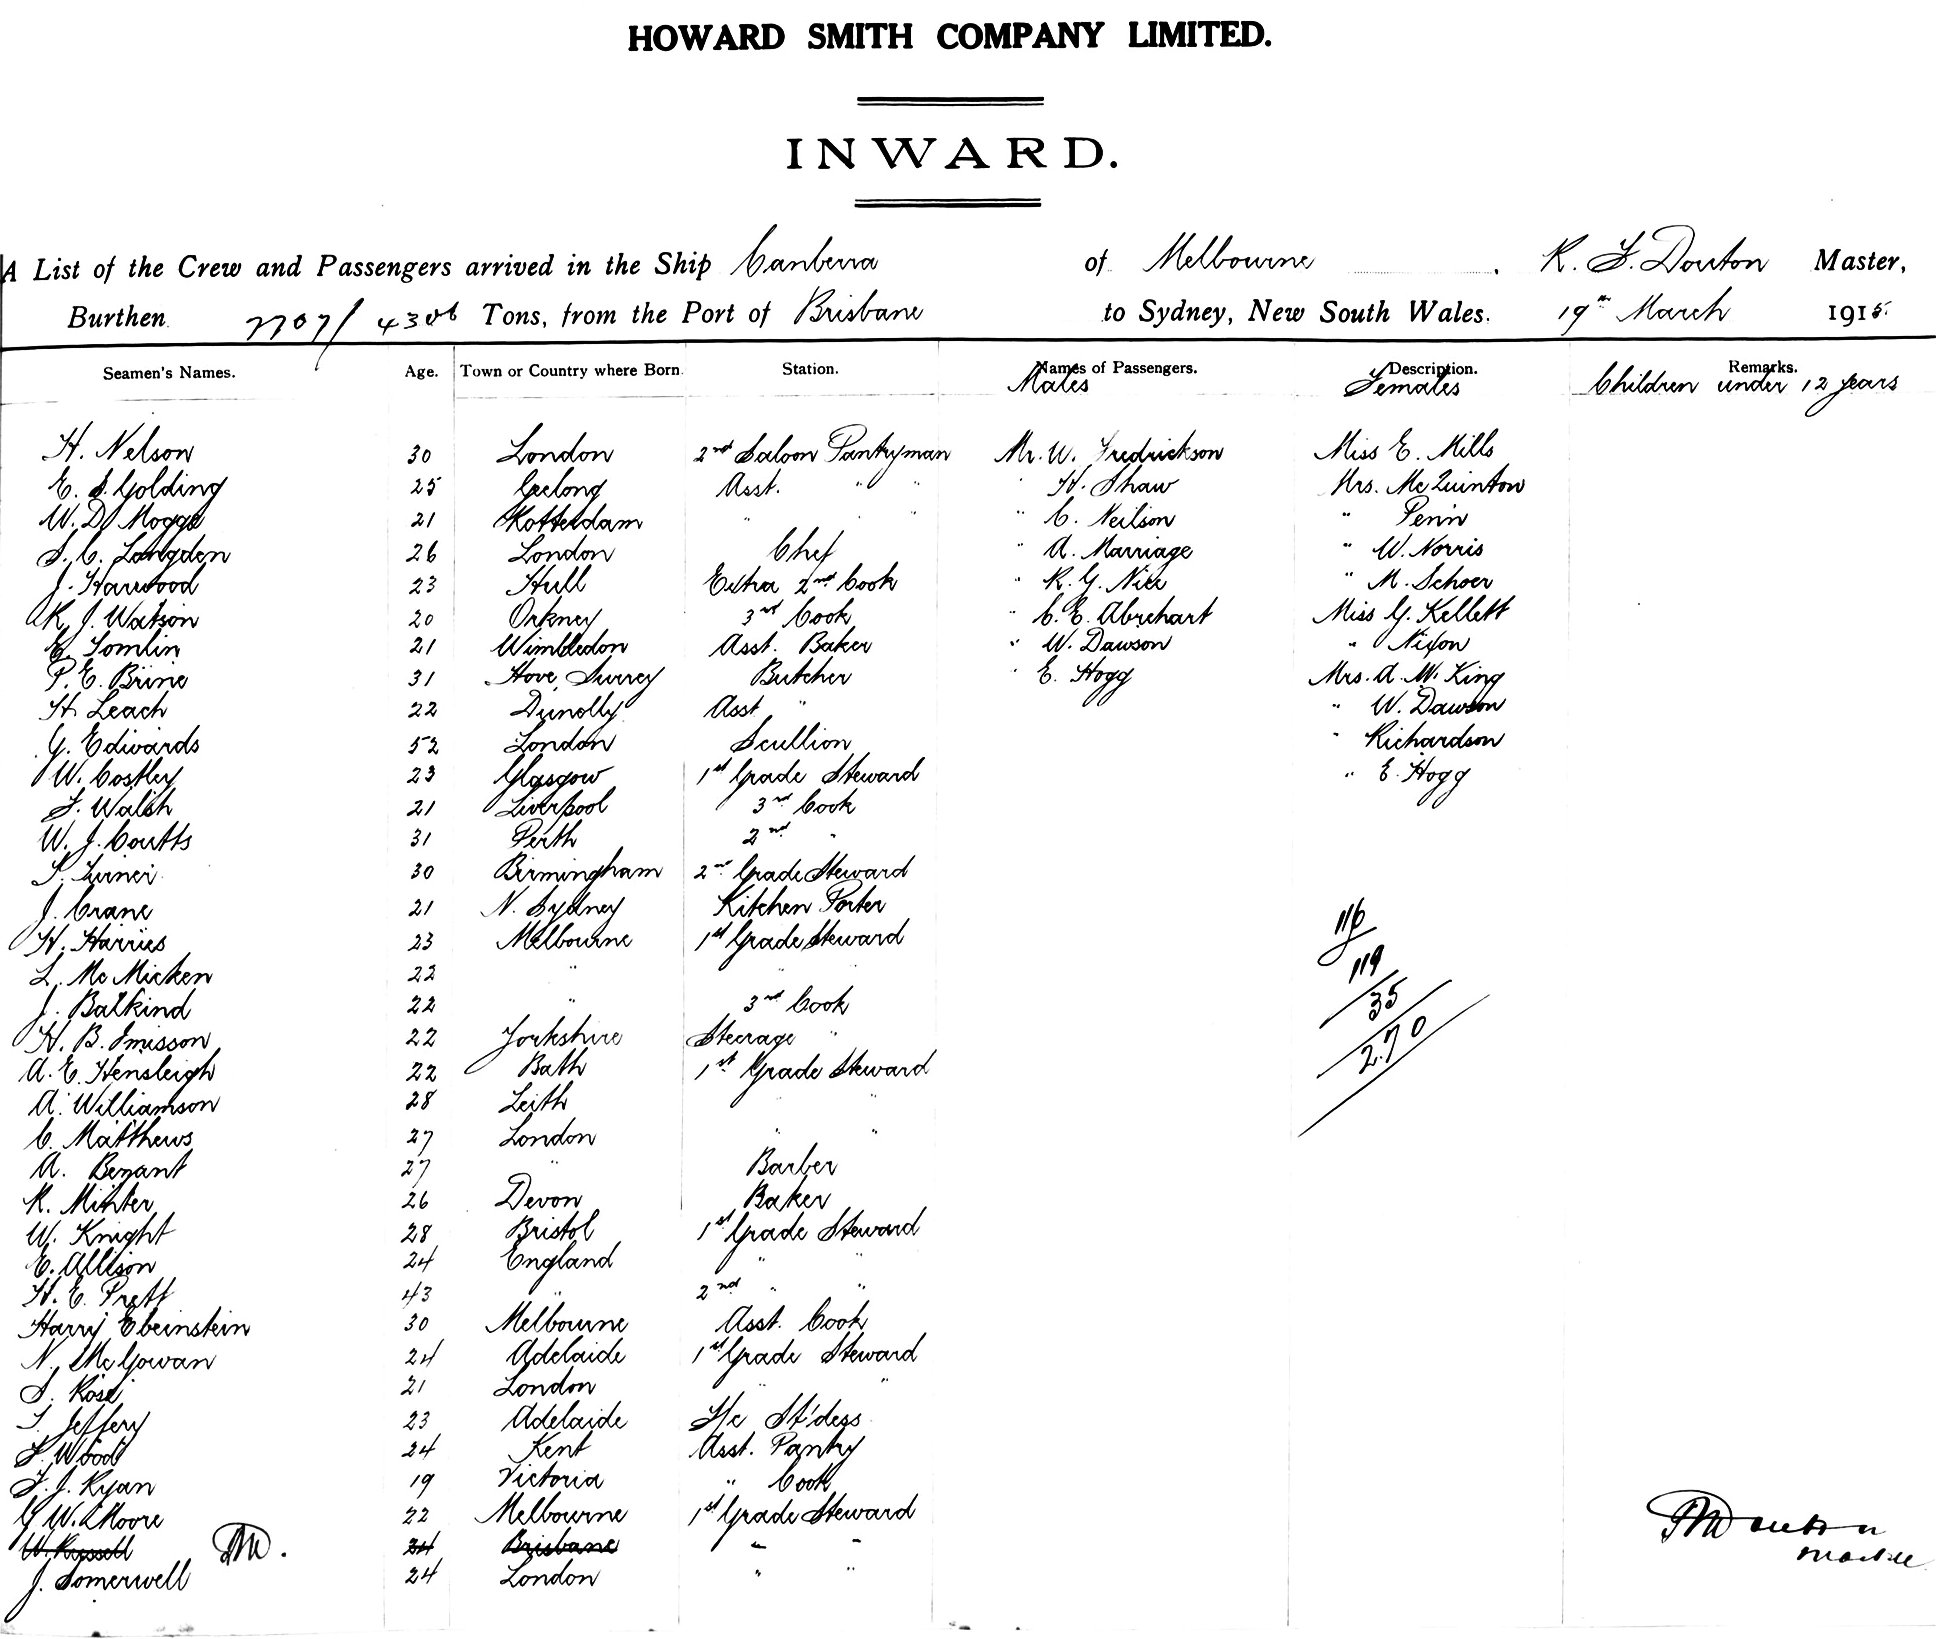 HOWARD SMITH COMPANY LIMITED.
INWARD.
A List of the Crew and Passengers arrived in the Ship Canberra of Melbourne. R. F. Douton Master,
Burthen 7707/ 4306 Tons, from the Port of Brisbane to Sydney, New South Wales. 19th March 1915.
Seamen's Names. Age. Town or Country where Born. Station. Names of Passengers. Description. Remarks.
Males Females Children under 12 years
H. Nelson 30 London 2nd Saloon Pantryman Mr. W. Fredrickson Miss E. Mills
E. S. Golding 25 Geelong Asst. " " " H. Shaw Mrs. McQuinton
W. D. Mogge 21 Rotterdam " " " C. Neilson " Penn
S. C. Langden 26 London Chef " A. Marriage " W. Norris
J. Harwood 23 Hull Extra 2nd Cook " R. G. Nice " M. Schoer
R. J. Watson 20 Orkney 3rd Cook " C. E. Abrehart Miss G. Kellett
E. Tomlin 21 Wimbledon Asst. Baker " W. Dawson " Nixon
P. E. Brine 31 Hove, Surrey Butcher " E. Hogg Mrs. A. W. King
H. Leach 22 Dunolly Asst. " " W. Dawson
G. Edwards 52 London Scullion " Richardson
W. Costley 23 Glasgow 1st Grade Steward " E. Hogg
S. Walsh 21 Liverpool 3rd Cook
W. J. Coutts 31 Perth 2nd "
Turner 30 Birmingham 2nd Grade Steward
J. Crane 21 N. Sydney Kitchen Porter
H. Harries 23 Melbourne 1st Grade Steward
L. McMicken 22 " " "
J. Balkind 22 " 3rd Cook
H. B. Imisson 22 Yorkshire Steerage "
A. E. Hensleigh 22 Bath 1st Grade Steward
A. Williamson 28 Leith " "
C. Matthews 27 London " "
A. Benant 27 " Barber
R. Minter 26 Devon Baker
W. Knight 28 Bristol 1st Grade Steward
E. Allison 24 England " "
H. E. Prett 43 " 2nd " "
Harry Ebeinstein 30 Melbourne Asst. Cook
N. McGowan 24 Adelaide 1st Grade Steward
S. Rose 21 London " "
Jeffery 23 Adelaide St'dess
Wood 24 Kent Asst. Pantry
J. Ryan 19 Victoria " Cook
G. W. Moore 22 Melbourne 1st Grade Steward
W. Russell 24 Brisbane " "
J. Somerwell 24 London " "
116
119
35
270
Douton
Master